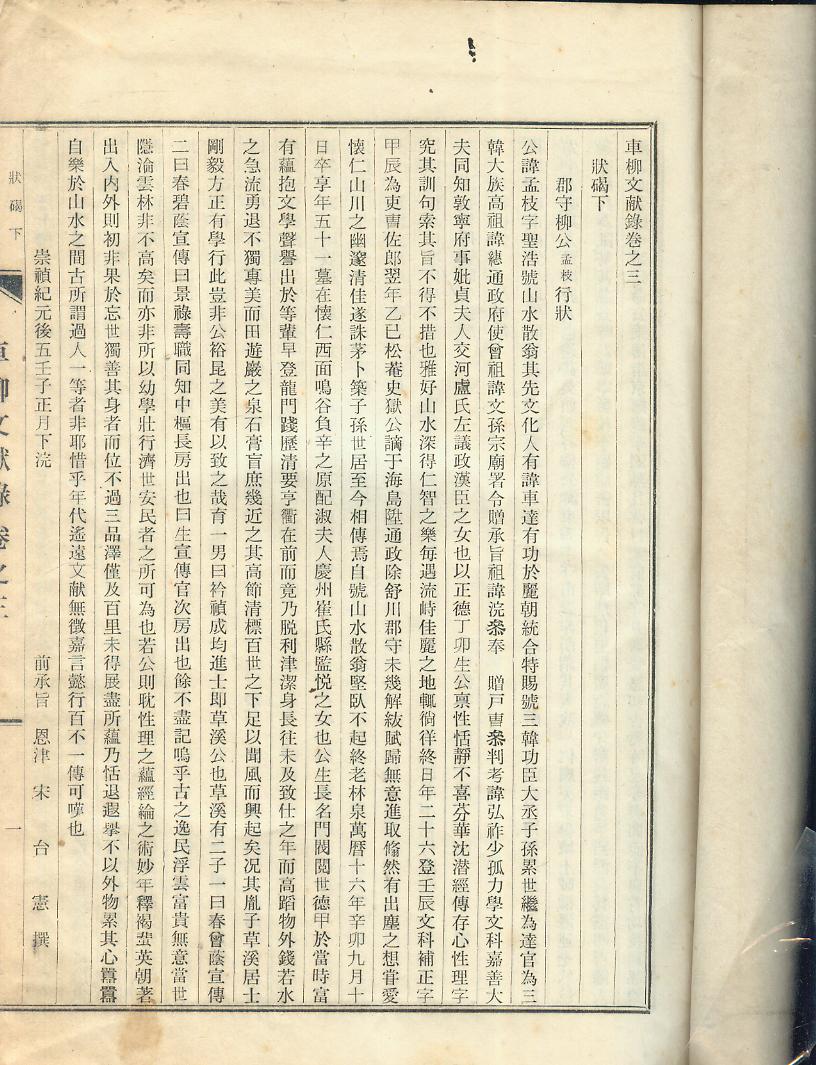 車柳文献錄卷之三
狀碣下
郡守柳公孟枝行狀
公諱孟枝字聖浩號山水散翁其先文化人有諱車達有功於麗朝統合特賜號三韓功臣大丞子孫累世繼為達官為三
韓大族高祖諱繐通政府使曾祖諱文孫宗廟署令贈承旨祖諱浣叅奉 贈戶曺叅判考諱弘祚少孤力學文科嘉善大
夫同知敦寧府事妣貞夫人交河盧氏左議政漢臣之女也以正德丁卯生公禀性恬靜不喜芬華沈潜經傳存心性理字
究其訓句索其旨不得不措也雅好山水深得仁智之樂每遇流峙佳麗之地輒徜徉終日年二十六登壬辰文科補正字
甲辰為吏曺佐郎翌年乙巳松菴史獄公謫于海島陞通政除舒川郡守未幾解紱賦歸無意進取翛然有出塵之想甞愛
懷仁山川之幽邃清佳遂誅茅卜築子孫世居至今相傳焉自號山水散翁堅臥不起終老林泉萬曆十六年辛卯九月十
日卒享年五十一墓在懷仁西面鳴谷負辛之原配淑夫人慶州崔氏縣監悅之女也公生長名門閥閱世德甲於當時富
有蘊抱文學聲譽出於等輩早登龍門踐歷清要亨衢在前而竟乃脫利津潔身長往未及致仕之年而高蹈物外錢若水
之急流勇退不獨專美而田遊巖之泉石膏肓庶幾近之其高節清標百世之下足以聞風而興起矣况其胤子草溪居士
剛毅方正有學行此豈非公裕昆之美有以致之哉育一男曰衿禎成均進士即草溪公也草溪有二子一曰春曾蔭宣傳
二曰春碧蔭宣傳曰景祿壽職同知中樞長房出也曰生宣傳官次房出也餘不盡記嗚乎古之逸民浮雲富貴無意當世
隱淪雲林非不高矣而亦非所以幼學壯行濟世安民者之所可為也若公則耽性理之蘊經綸之術妙年釋褐蜚英朝著
出入內外則初非果於忘世獨善其身者而位不過三品澤僅及百里未得展盡所蘊乃恬退遐擧不以外物累其心囂囂
自樂於山水之間古所謂過人一等者非耶惜乎年代遙遠文献無徵嘉言懿行百不一傳可嘆也
崇禎紀元後五壬子正月下浣 前承旨 恩津 宋 台 憲 撰
狀碣下
車柳文献錄卷之三
一